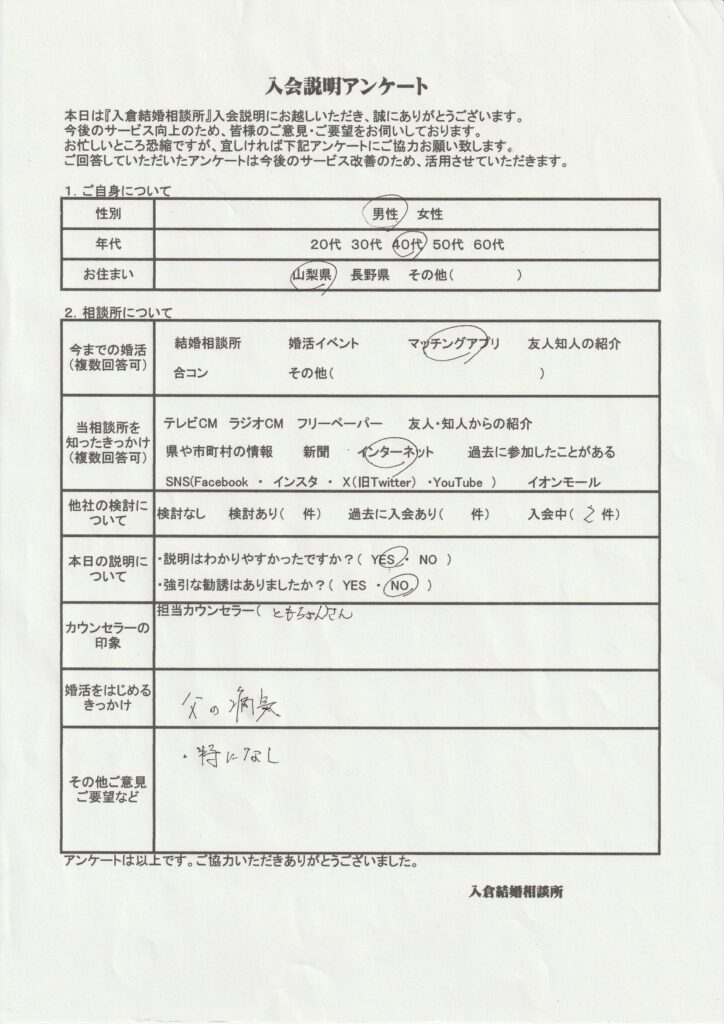 入会説明アンケート
本日は『入倉結婚相談所』入会説明にお越しいただき、誠にありがとうございます。
今後のサービス向上のため、皆様のご意見・ご要望をお伺いしております。
お忙しいところ恐縮ですが、宜しければ下記アンケートにご協力お願い致します。
ご回答していただいたアンケートは今後のサービス改善のため、活用させていただきます。
1. ご自身について
性別 男性 女性
年代 20代 30代 40代 50代 60代
お住まい 山梨県 長野県 その他( )
2. 相談所について
今までの婚活
(複数回答可)
結婚相談所 婚活イベント マッチングアプリ 友人知人の紹介
合コン その他( )
当相談所を
知ったきっかけ
(複数回答可)
テレビCM ラジオCM フリーペーパー 友人・知人からの紹介
県や市町村の情報 新聞 インターネット 過去に参加したことがある
SNS(Facebook ・ インスタ ・ X(旧Twitter) ・YouTube ) イオンモール
他社の検討に
ついて
検討なし 検討あり( 件) 過去に入会あり( 件) 入会中( 2 件)
本日の説明に
ついて
・説明はわかりやすかったですか?( YES ・ NO )
・強引な勧誘はありましたか?( YES ・ NO )
カウンセラーの
印象
担当カウンセラー( ともちょん)さん
婚活をはじめる
きっかけ
父の病気
その他ご意見
ご要望など
・特になし
アンケートは以上です。ご協力いただきありがとうございました。
入倉結婚相談所